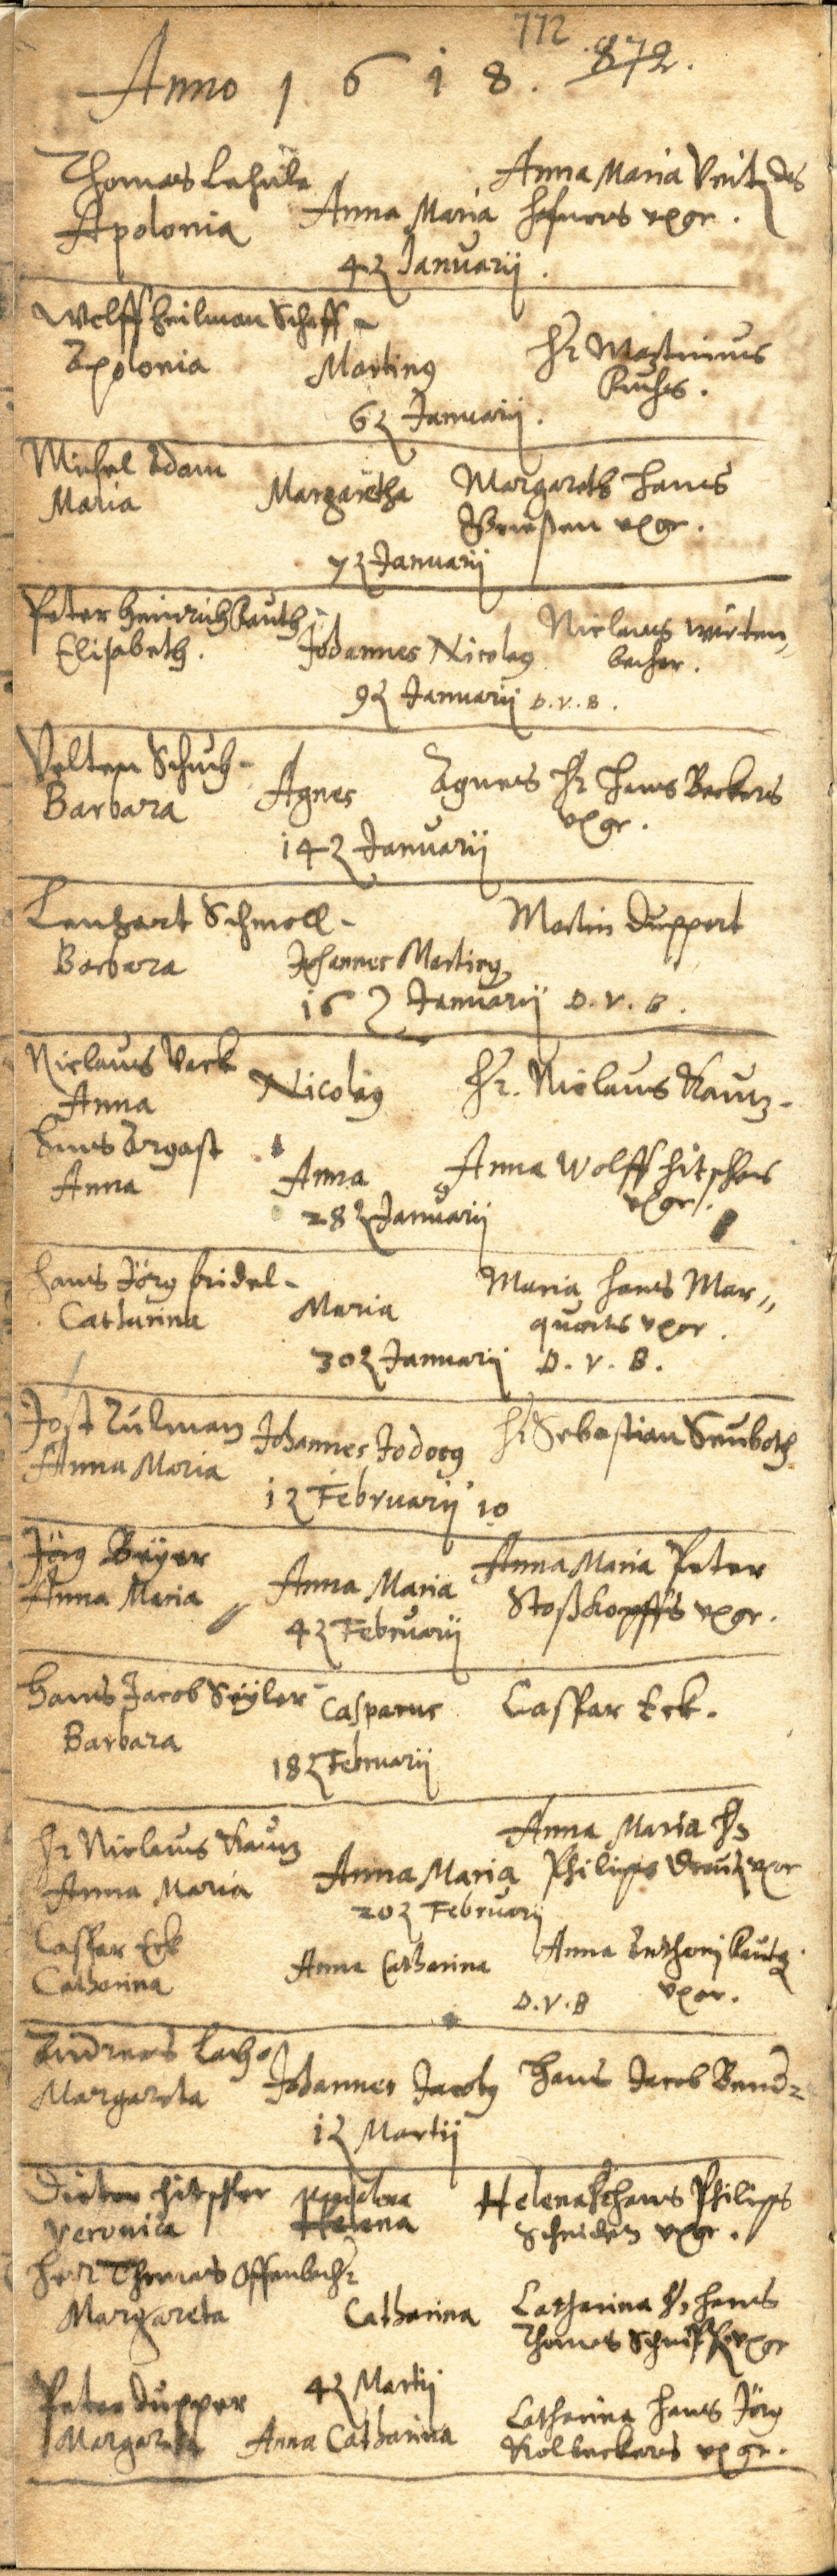 772
872.
Anno 1618.
Thomas Lehüle
Apolonia
Anna Maria
Anna Maria Veit des
hefners vxor.
4 Januarij.
Wolff Heilman Scheff
Apolonia
Martinus
Hr Martinus
Fuchs.
6 Januarij.
Michel Adam
Maria
Margaretha
Margareth Hans
vxor.
7 Januarij
Peter Heinrich Rauth
Elisabeth.
Johannes Nicolaus
Niclaus Wirten,,
becher.
9 Januarij D.V.B.
Velten Schuch
Barbara
Agnes
Agnes Hr Hans Beckers
vxor.
14 Januarij
Lenhart Schmoll
Barbara
Johannes Martinus
Martin Duppert
16 Januarij D.V.B.
Niclaus Veck
Anna
Nicolaus
Hr. Niclaus Kautz
Hans Argast
Anna
Anna
Anna Wolff Hitschlers
vxor.
28 Januarij
Hans Jörg Fridel
Catharina
Maria
Maria Hans Mar,,
quarts vxor.
30 Januarij D.V.B.
Jost Ulman
Anna Maria
Johannes Jodocus
Hr Sebastian Seuboth
1 Februarij 10
Jörg Beyer
Anna Maria
Anna Maria
Anna Maria Peter
Stoßkopffs vxor.
4 Februarij
Hans Jacob Seyler
Barbara
Casparus
Caspar Eck.
18 Februarij
Hr Niclaus Kautz
Anna Maria
Anna Maria
Anna Maria Hr
Philips vxor
20 Februarij
Caspar Eck
Catharina
Anna Catharina
Anna Anthonj Kautz
vxor.
D.V.B
Andreas Lech
Margareta
Johannes Jacobus
Hans Jacob Bend
1 Martij
Dieter Hitschler
Veronica
Helena
Helena Hr Hans Philips
Schneiders vxor.
Herr Thomas Offenbacher
Margareta
Catharina
Catharina Hr Hans
Thomas vxor
4 Martij
Peter Dupper
Margareta
Anna Catharina
Catharina Hans Jörg
Kolbeckers vxor.